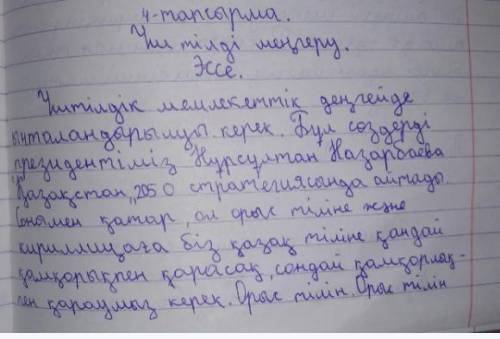 4-тапсырма.
Үш тілді меңгеру.
Эссе.
Үштілдік мемлекеттік деңгейде
ынталандырылуы керек. Бұл сөздерді
президентіміз Нұрсұлтан Назарбаева
"Қазақстан„ 2050 стратегиясында айтады.
Сонымен қатар, ол орыс тіліне және
кириллицаға біз қазақ тіліне қандай
қамқорықпен қарасақ, сондай қамқорлық-
пен қарауымыз керек. Орыс тілін. Орыс тілін